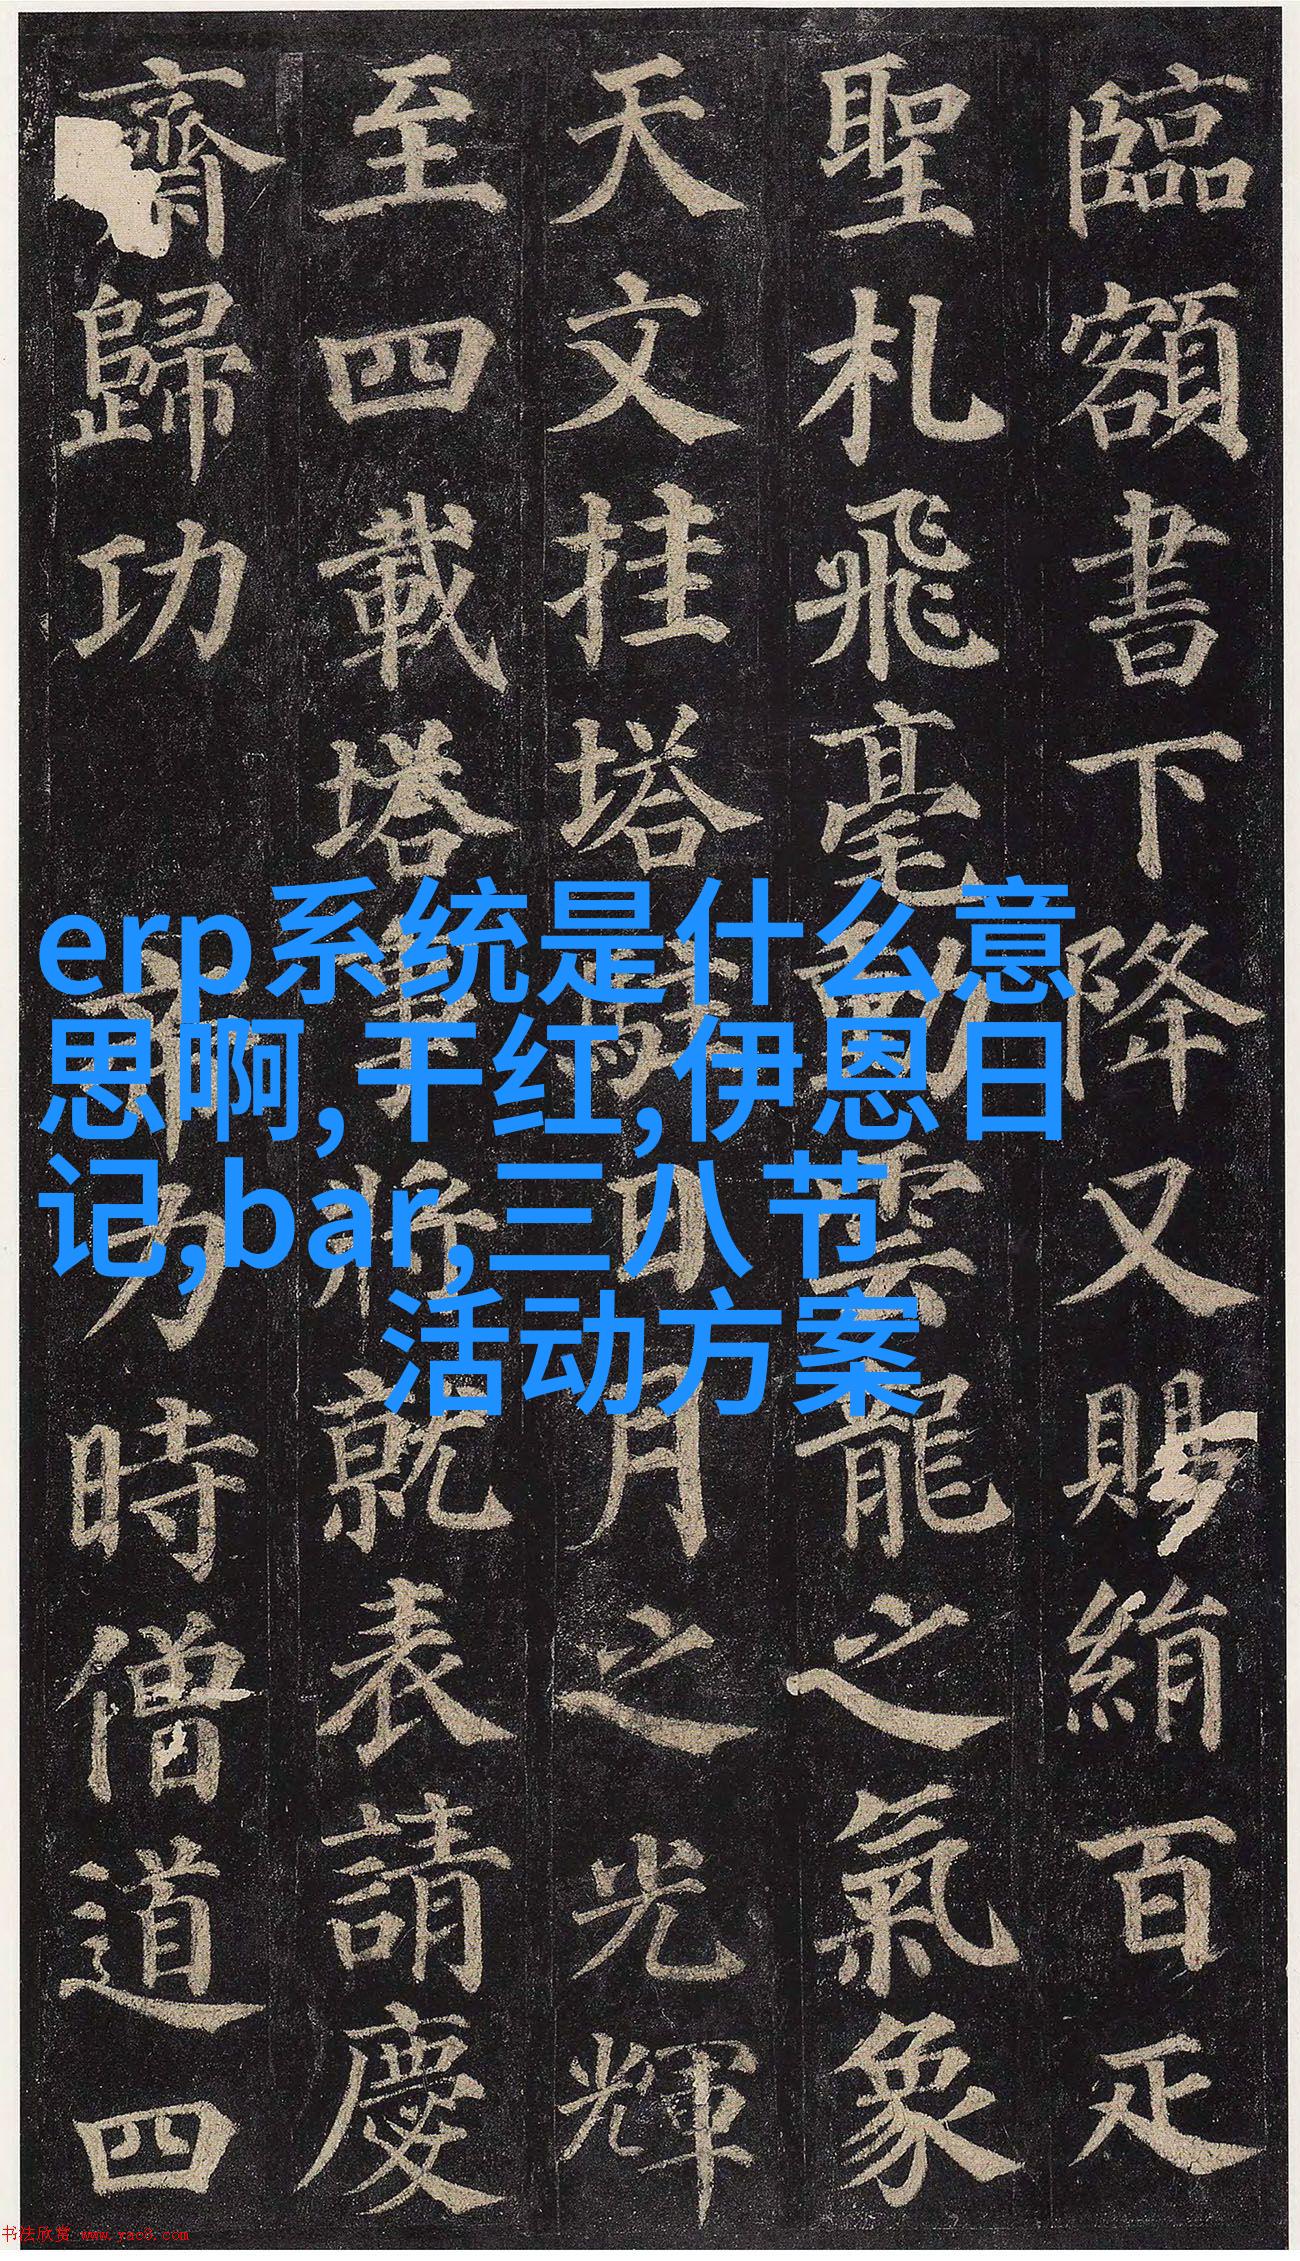 臨額書下降又賜絹百疋
聖札飛毫動雲龍之氣象
天文挂塔駐日月之光輝
至四載塔事將就表請慶
齋歸功帝力時僧道四
erp系统是什么意
思啊,干红,伊恩日
记,bar,三八节
活动方案
书法欣赏 www.yac8.com